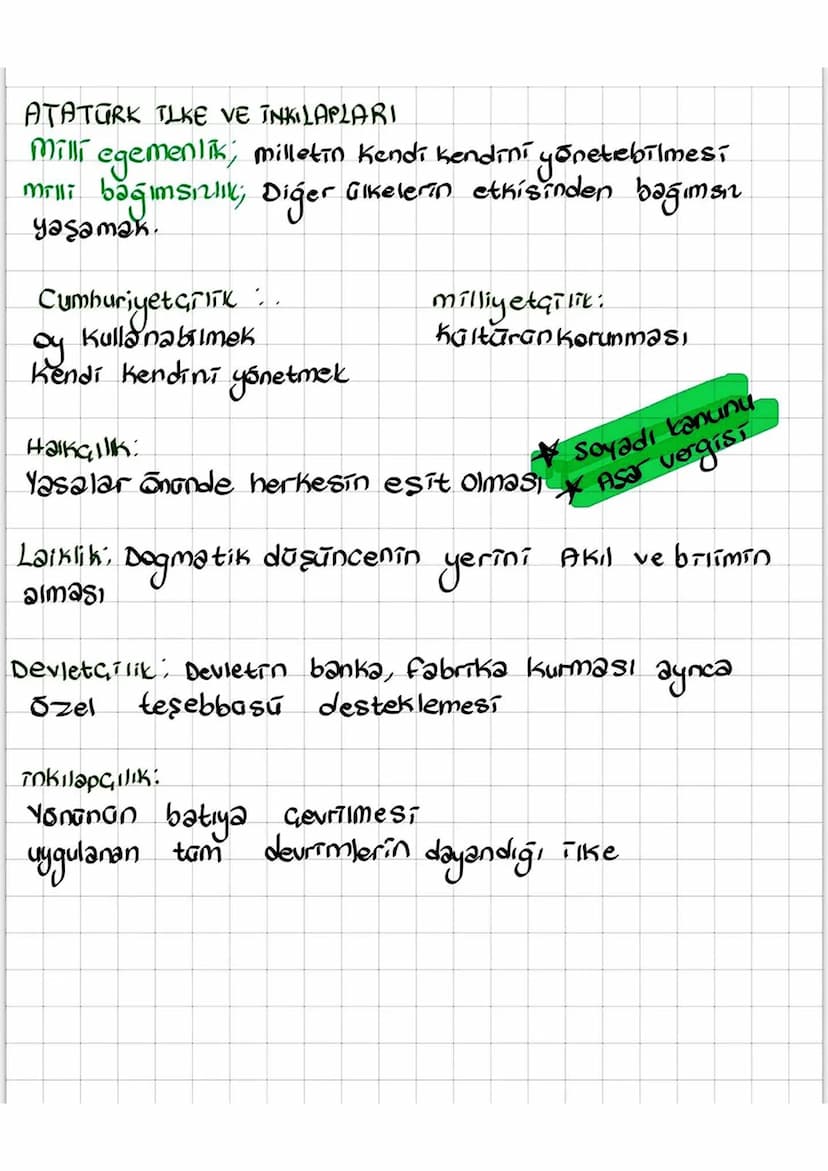 ATATÜRK İLKE VE İNKILAPLARI
Milli egemenlik; milletin kendi kendini yönetebilmesi
milli bağımsızlık; Diğer ülkelerin etkisinden bağımsız
yaşamak.
Cumhuriyetçilik :.
oy kullanabilmek
kendi kendini yönetmek
milliyetçilik:
kültürün korunması
Halkçılık:
Yasalar önünde herkesin eşit olması
★ Soyadı kanunu
★ Aşar vergisi
Laiklik: Dogmatik düşüncenin yerini Akıl ve bilimin
alması
Devletçilik: Devletin banka, fabrika kurması ayrıca
özel teşebbüsü desteklemesi
inkılapçılık:
Yönünün batıya çevrilmesi
uygulanan tüm devrimlerin dayandığı ilke